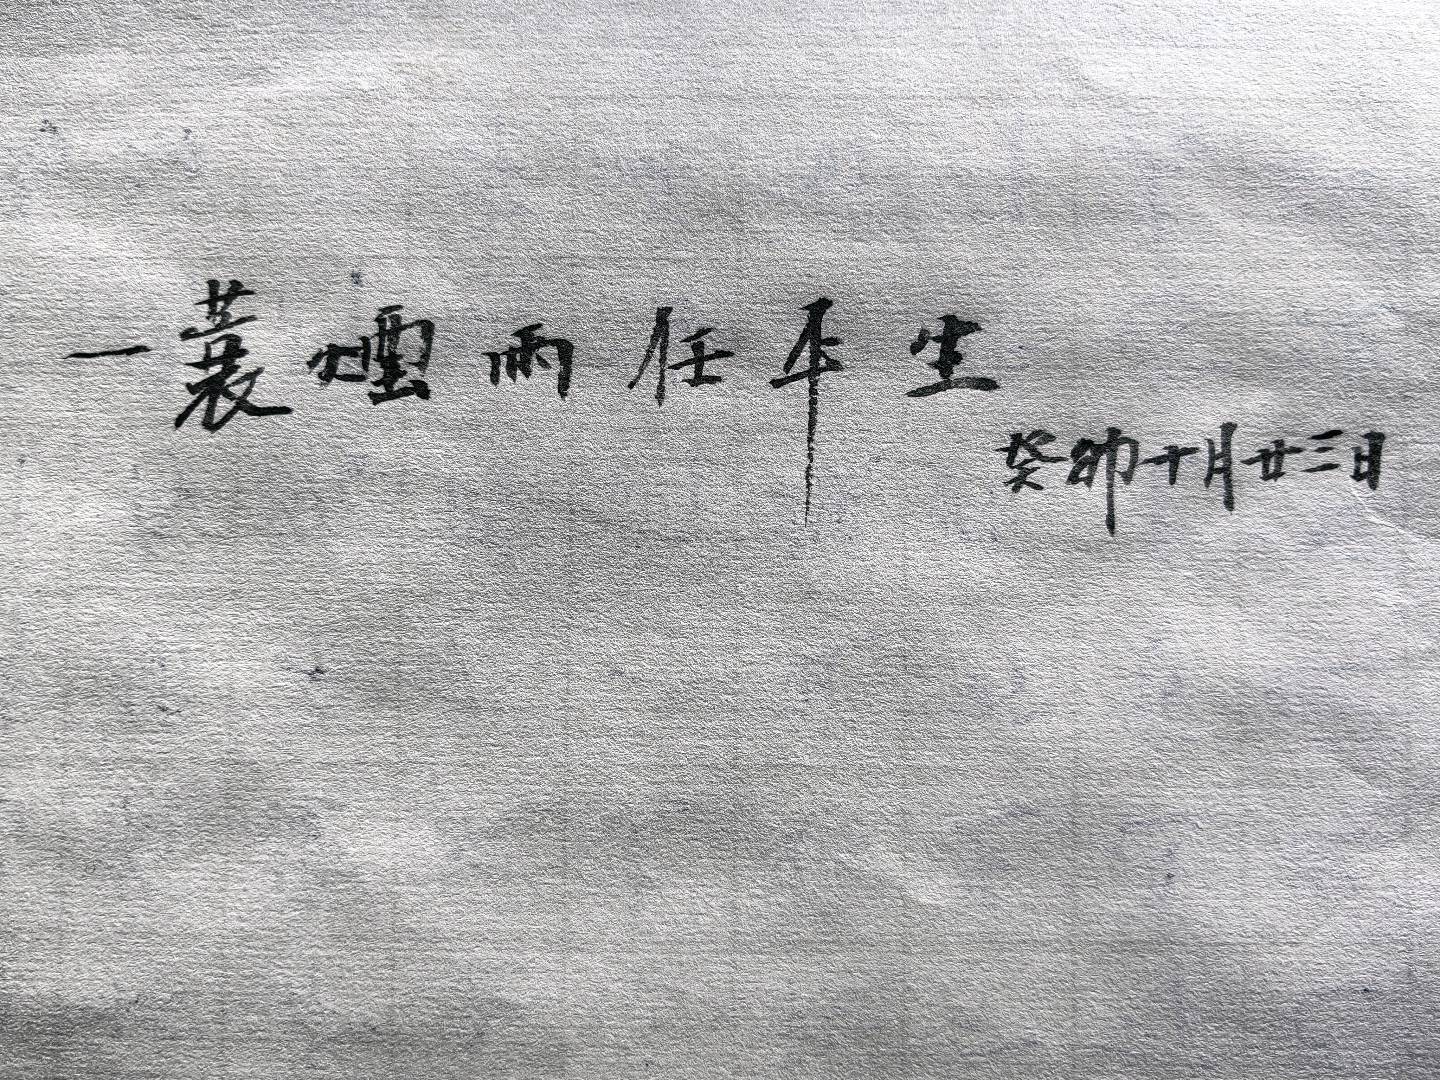 一蓑煙雨任平生
癸卯十月廿三日